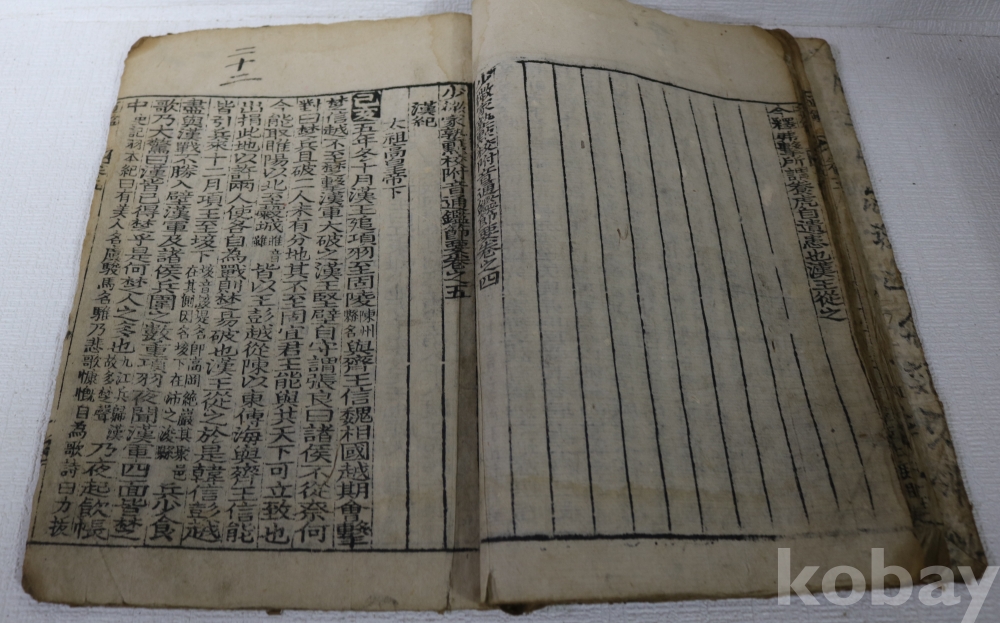 今釋弗擊所謂養虎自遺患也漢王從之
少微家塾點校附音通鑑節要卷之四
二十二
少微家塾點校附音通鑑節要卷之五
漢紀
太祖高皇帝下
己亥五年冬十月漢王追項羽至固陵陳州縣名與齊王信魏相國越期會擊
楚信越不至楚擊漢軍大破之漢王堅壁自守謂張良曰諸侯不從奈何
對曰楚兵且破二人未有分地其不至固宜君王能與共天下可立致也
今能取睢陽以北至穀城 皆以王彭越從陳以東傅海與齊王信能
出捐此地以許兩人使各自爲戰則楚易破也漢王從之於是韓信彭越
皆引兵來十二月項王至垓下 兵少食
盡與漢戰不勝入壁漢軍及諸侯兵圍之數重項羽夜聞漢軍四面皆楚
歌乃大驚曰漢皆已得楚乎是何楚人之多也九江兵歸漢故多楚聲乃夜起飮帳
中史記羽本紀曰有美人名虞駿馬名騅乃悲歌慷慨自爲歌詩曰力拔
kobay